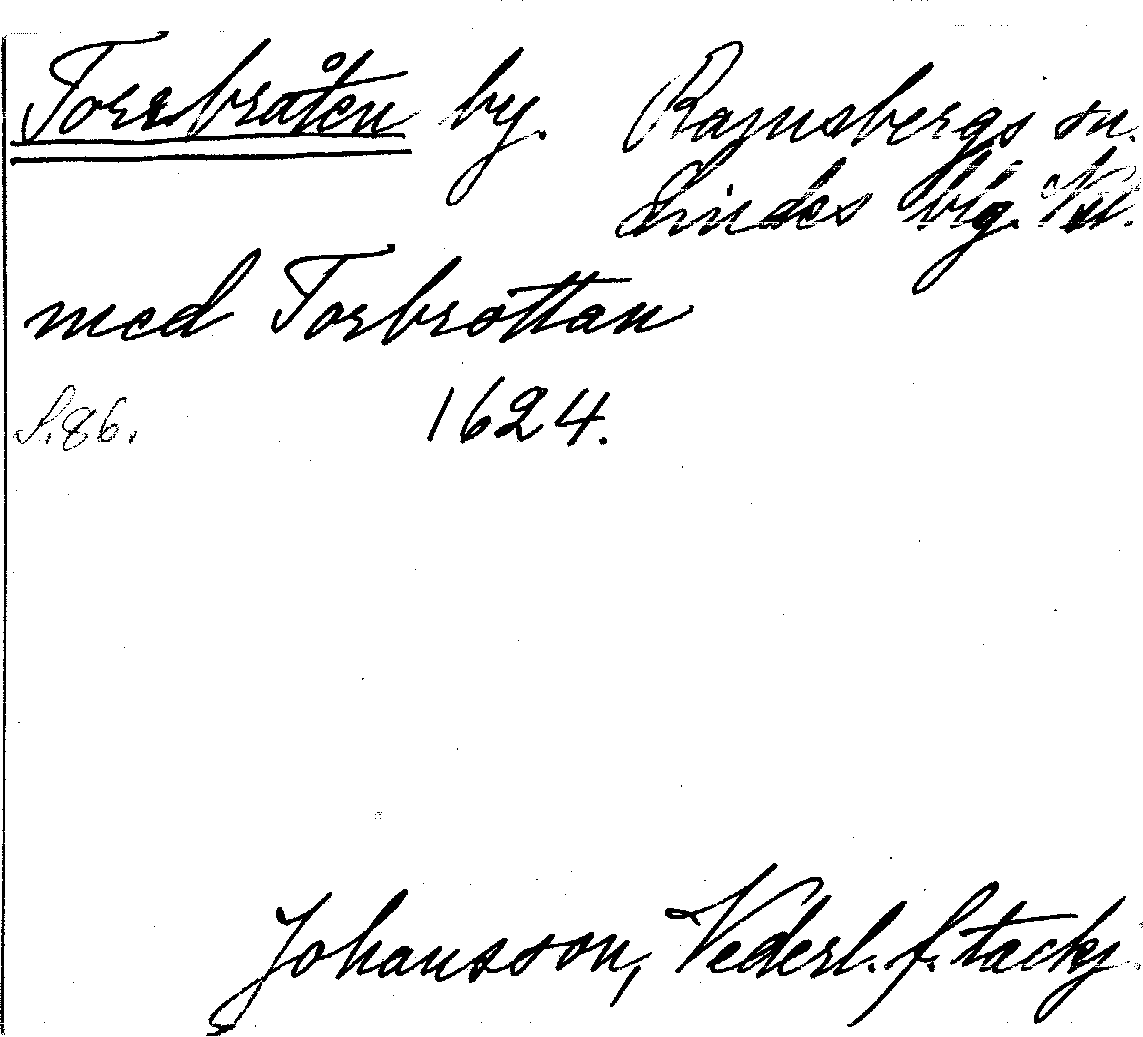 Torrbråten by. Ramsbergs sn.
Lindes blg. Vstl.
med Torbråttan
S. 86. 1624.
Johansson, Vederl. f. tackj.